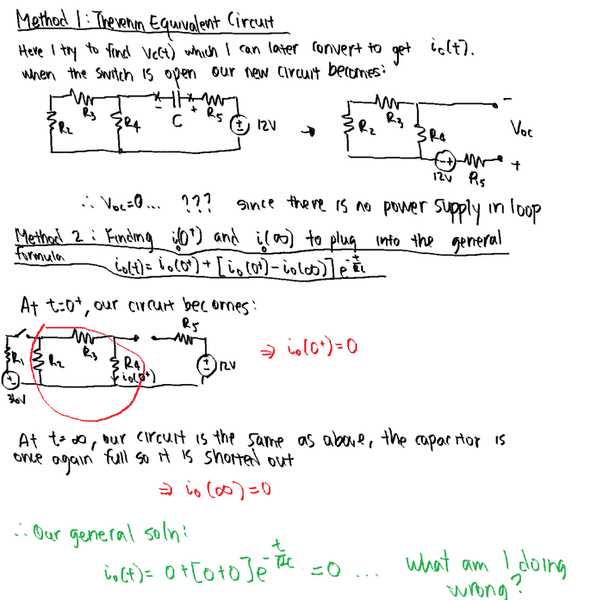 Method 1: Thevenin Equivalent Circuit
Here I try to find Vc(t) which I can later convert to get ic(t).
when the switch is open our new circuit becomes:
R3
R2
R4
- +
C
R5
12V
R3
R2
R4
-
Voc
+
12V
R5
∴ Voc=0... ??? since there is no power supply in loop
Method 2: Finding i0(0+) and i0(∞) to plug into the general
formula i0(t) = i0(0+) + [i0(0+) - i0(∞)] e^-t/RC
At t=0+, our circuit becomes:
R5
R3
R1
R2
R4
i0(0+)
12V
36V
⇒ i0(0+)=0
At t=∞, our circuit is the same as above, the capacitor is
once again full so it is shorted out
⇒ i0(∞)=0
∴ Our general soln:
i0(t) = 0+[0+0]e^-t/RC = 0 ... what am I doing
wrong?